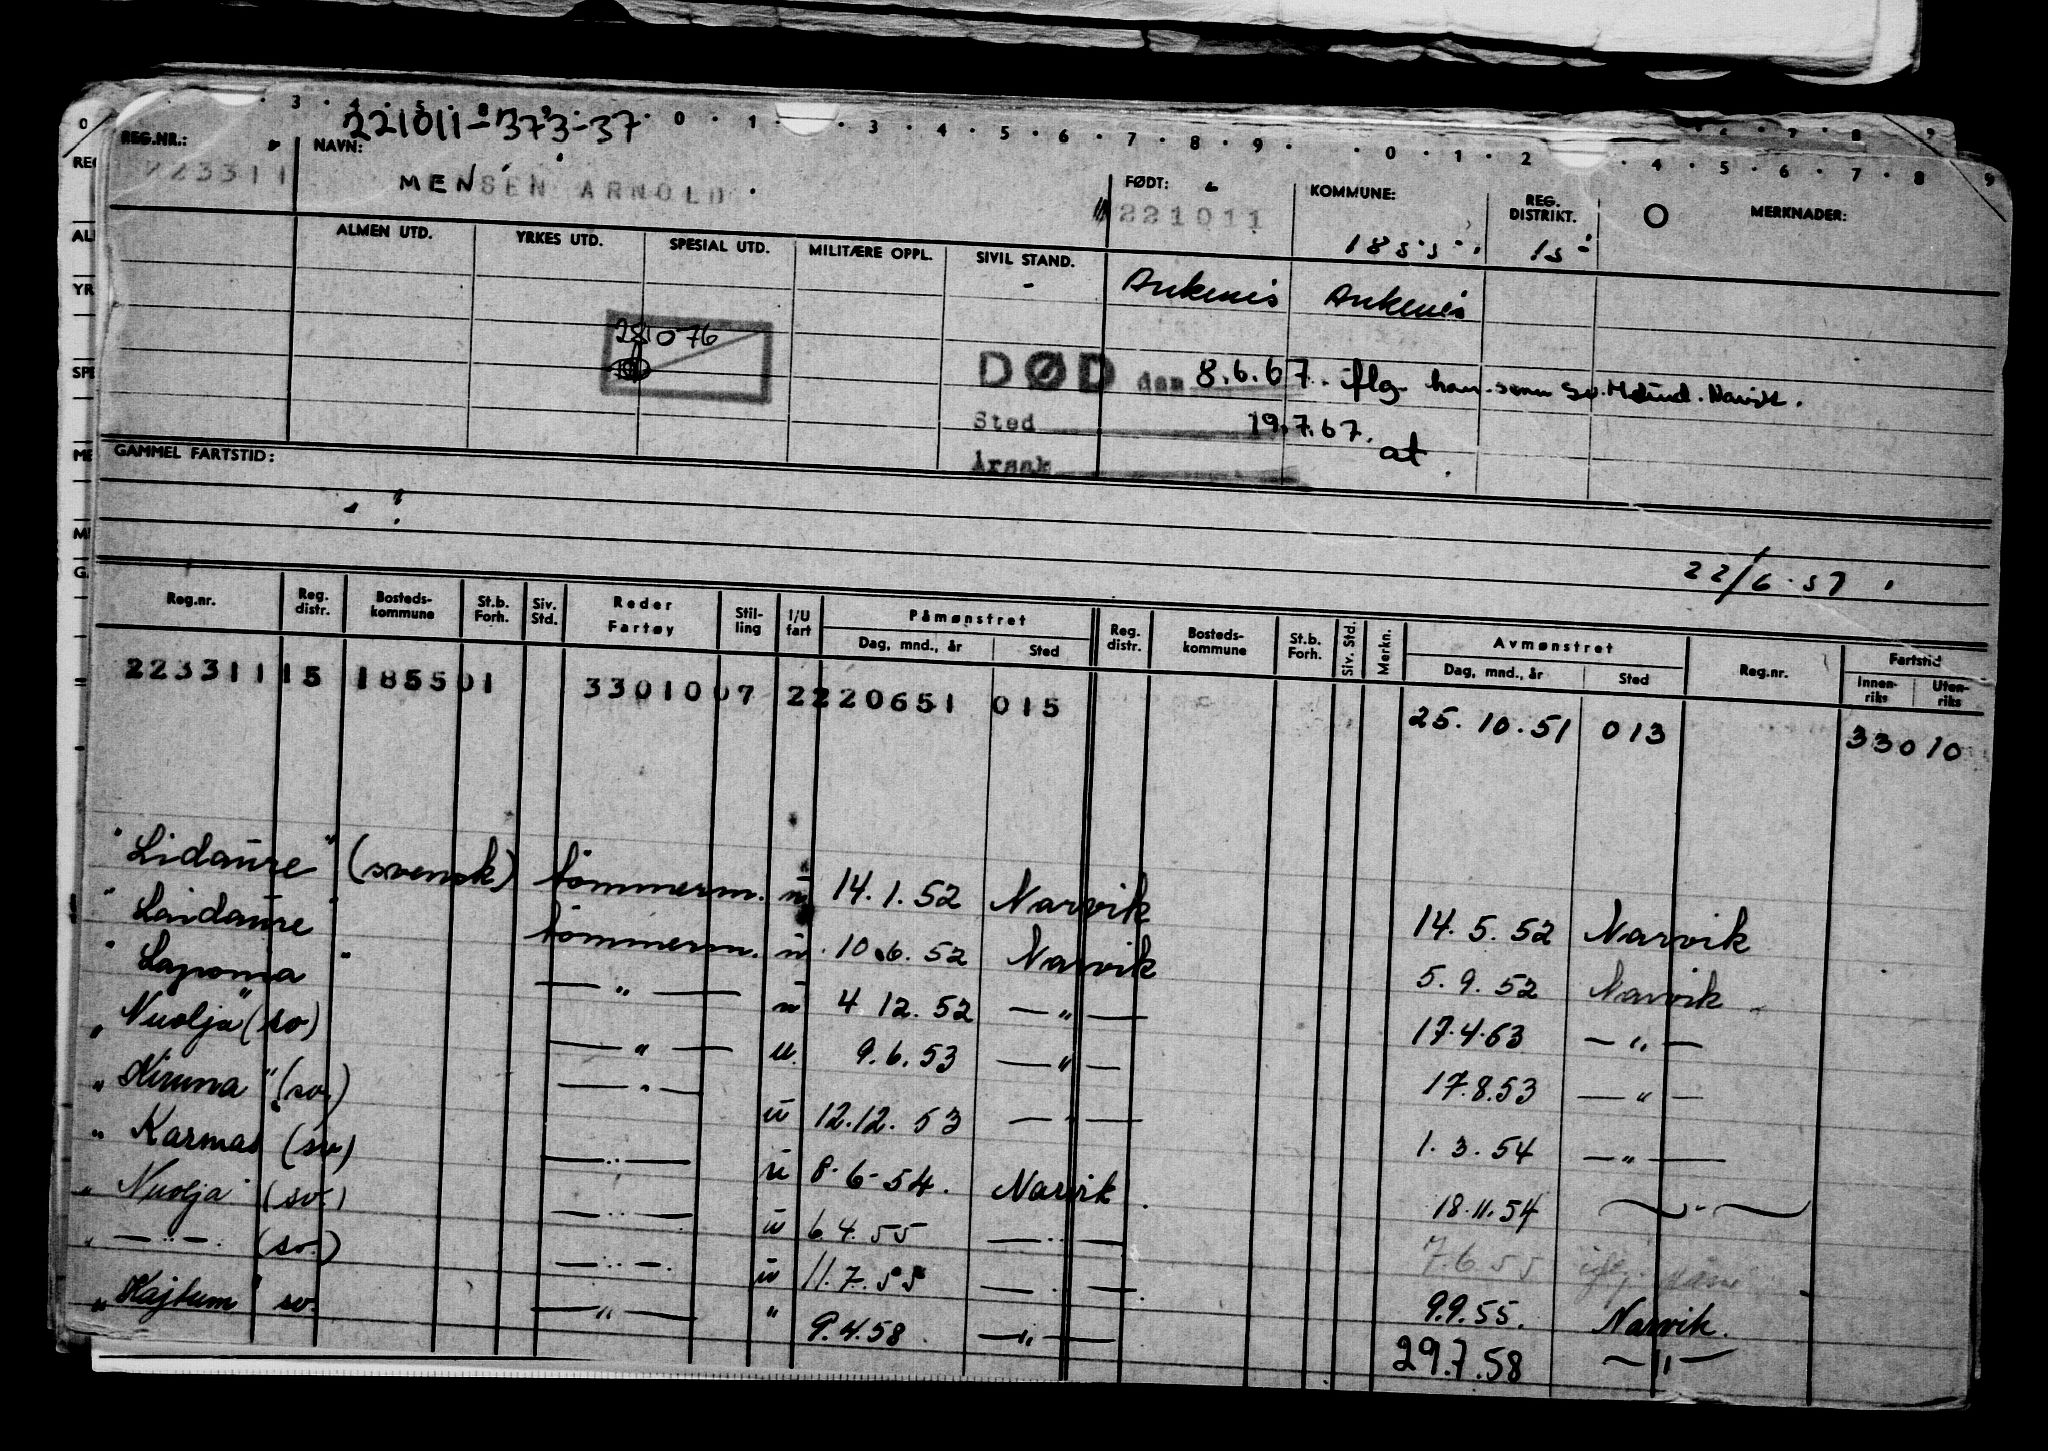 221011-373-37
REG.NR.: NAVN: FØDT: KOMMUNE: REG. DISTRIKT. MERKNADER:
223311 MENSEN ARNOLD 221011 1855 15
ALMEN UTD. YRKES UTD. SPESIAL UTD. MILITÆRE OPPL. SIVIL STAND.
Ankenes Ankenes
281076
DØD den 8.6.67. iflg.
Sted 19.7.67. at.
Årsak
GAMMEL FARTSTID:
22/6.57
Reg.nr. Reg. distr. Bosteds-kommune St.b. Forh. Siv. Std. Reder Fartøy Stil-ling I/U fart Påmønstret Reg. distr. Bosteds-kommune St.b. Forh. Siv. Std. Merkn. Avmønstret Reg.nr. Fartstid
Dag, mnd., år Sted Dag, mnd., år Sted Innen-riks Uten-riks
223311 15 1855 01 33010 07 2 220651 015 25.10.51 013 33010
"Lidaure" (svensk) tømmerm. u 14.1.52 Narvik 14.5.52 Narvik
"Laidaure" " tømmerm. u. 10.6.52 Narvik 5.9.52 Narvik
"Laponia " — " — u 4 12.52 — " — 17.4.53 — " —
"Nuolja" (sv) — " — u. 9.6.53 — " — 17.8.53 — " —
"Kiruna" (sv.) — " — u 12.12.53 — " — 1.3.54 — " —
"Karmas (sv) — " — u 8.6-54. Narvik. 18.11.54 — " —
"Nuolja" (sv.) — " — u 6.4.55 — " — 7.6.55
" — " —. (sv.) — " —. u 11.7.55 — " — 9.9.55. Narvik.
"Kajtum" sv. — " — " 9.4.58. — " — 29.7.58 — " —